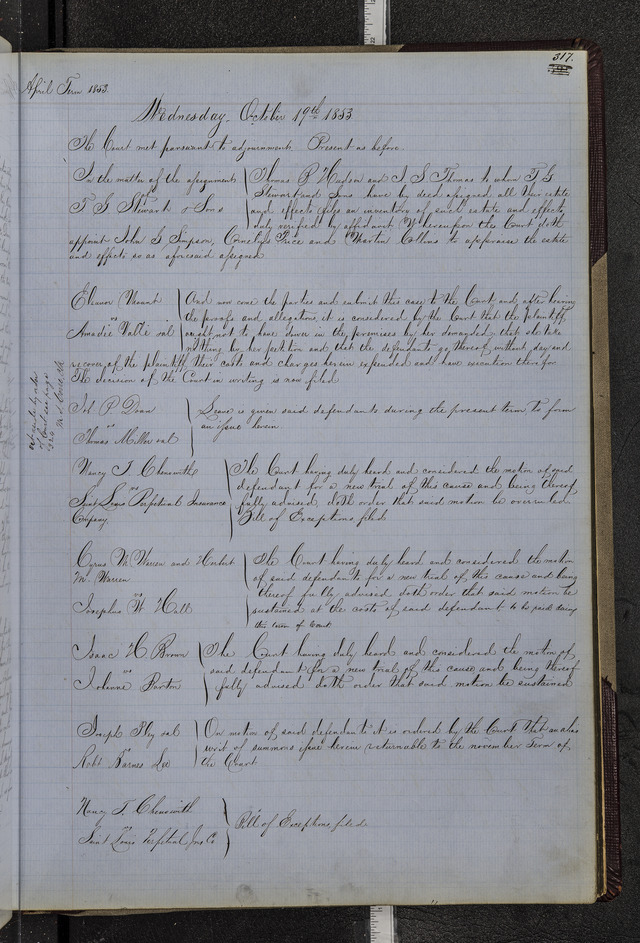 317.
April Term 1853
Wednesday October 19th 1853
The Court met pursuant to adjournment. Present as before.
In the matter of the assignment
T S Stewart & Sons
Thomas R Hudson and J S Thomas to whom T S
Stewart and Sons have by deed assigned all their estate
and effects files an inventory of such estate and effects
duly verified by affidavit Whereupon the Court doth
appoint John S Simpson, Price and Martin Collins to appraise the estate
and effects so as aforesaid assigned
Eleanor Mount
vs
Amadie Valle et al
And now come the parties and submit this case to the Court and after hearing
the proofs and allegations, it is considered by the Court that the plaintiff
ought not to have dower in the premises by her demanded, that she take
nothing by her petition and that the defendants go thereof without day and
recover of the plaintiff their costs and charges herein expended and have execution therefor
The decision of the Court in writing is now filed
P Doan
vs
Thomas Miller et al
Leave is given said defendants during the present term to form
an issue herein
Nancy T Chenowith
vs
Saint Louis Perpetual Insurance
Company
The Court having duly heard and considered the motion of said
defendant for a new trial of this cause and being thereof
fully advised, doth order that said motion be overruled
Bill of Exceptions filed
Cyrus M Warren and Herbert
M. Warren
vs
Josephus W Hall
The Court having duly heard and considered the motion
of said defendant for a new trial of this cause and being
thereof fully advised doth order that said motion be
sustained at the costs of said defendant to be paid during
the term of Court
Isaac H Brown
vs
Johanne Barton
The Court having duly heard and considered the motion of
said defendant for a new trial of this cause, and being thereof
fully advised doth order that said motion be sustained
Joseph Bly et al
vs
Robt Barnes
On motion of said defendants it is ordered by the Court that an alias
writ of summons issue herein returnable to the november term of
the Court
Nancy T. Chenowith
vs
Saint Louis Perpetual Ins Co
Bill of Exceptions filed